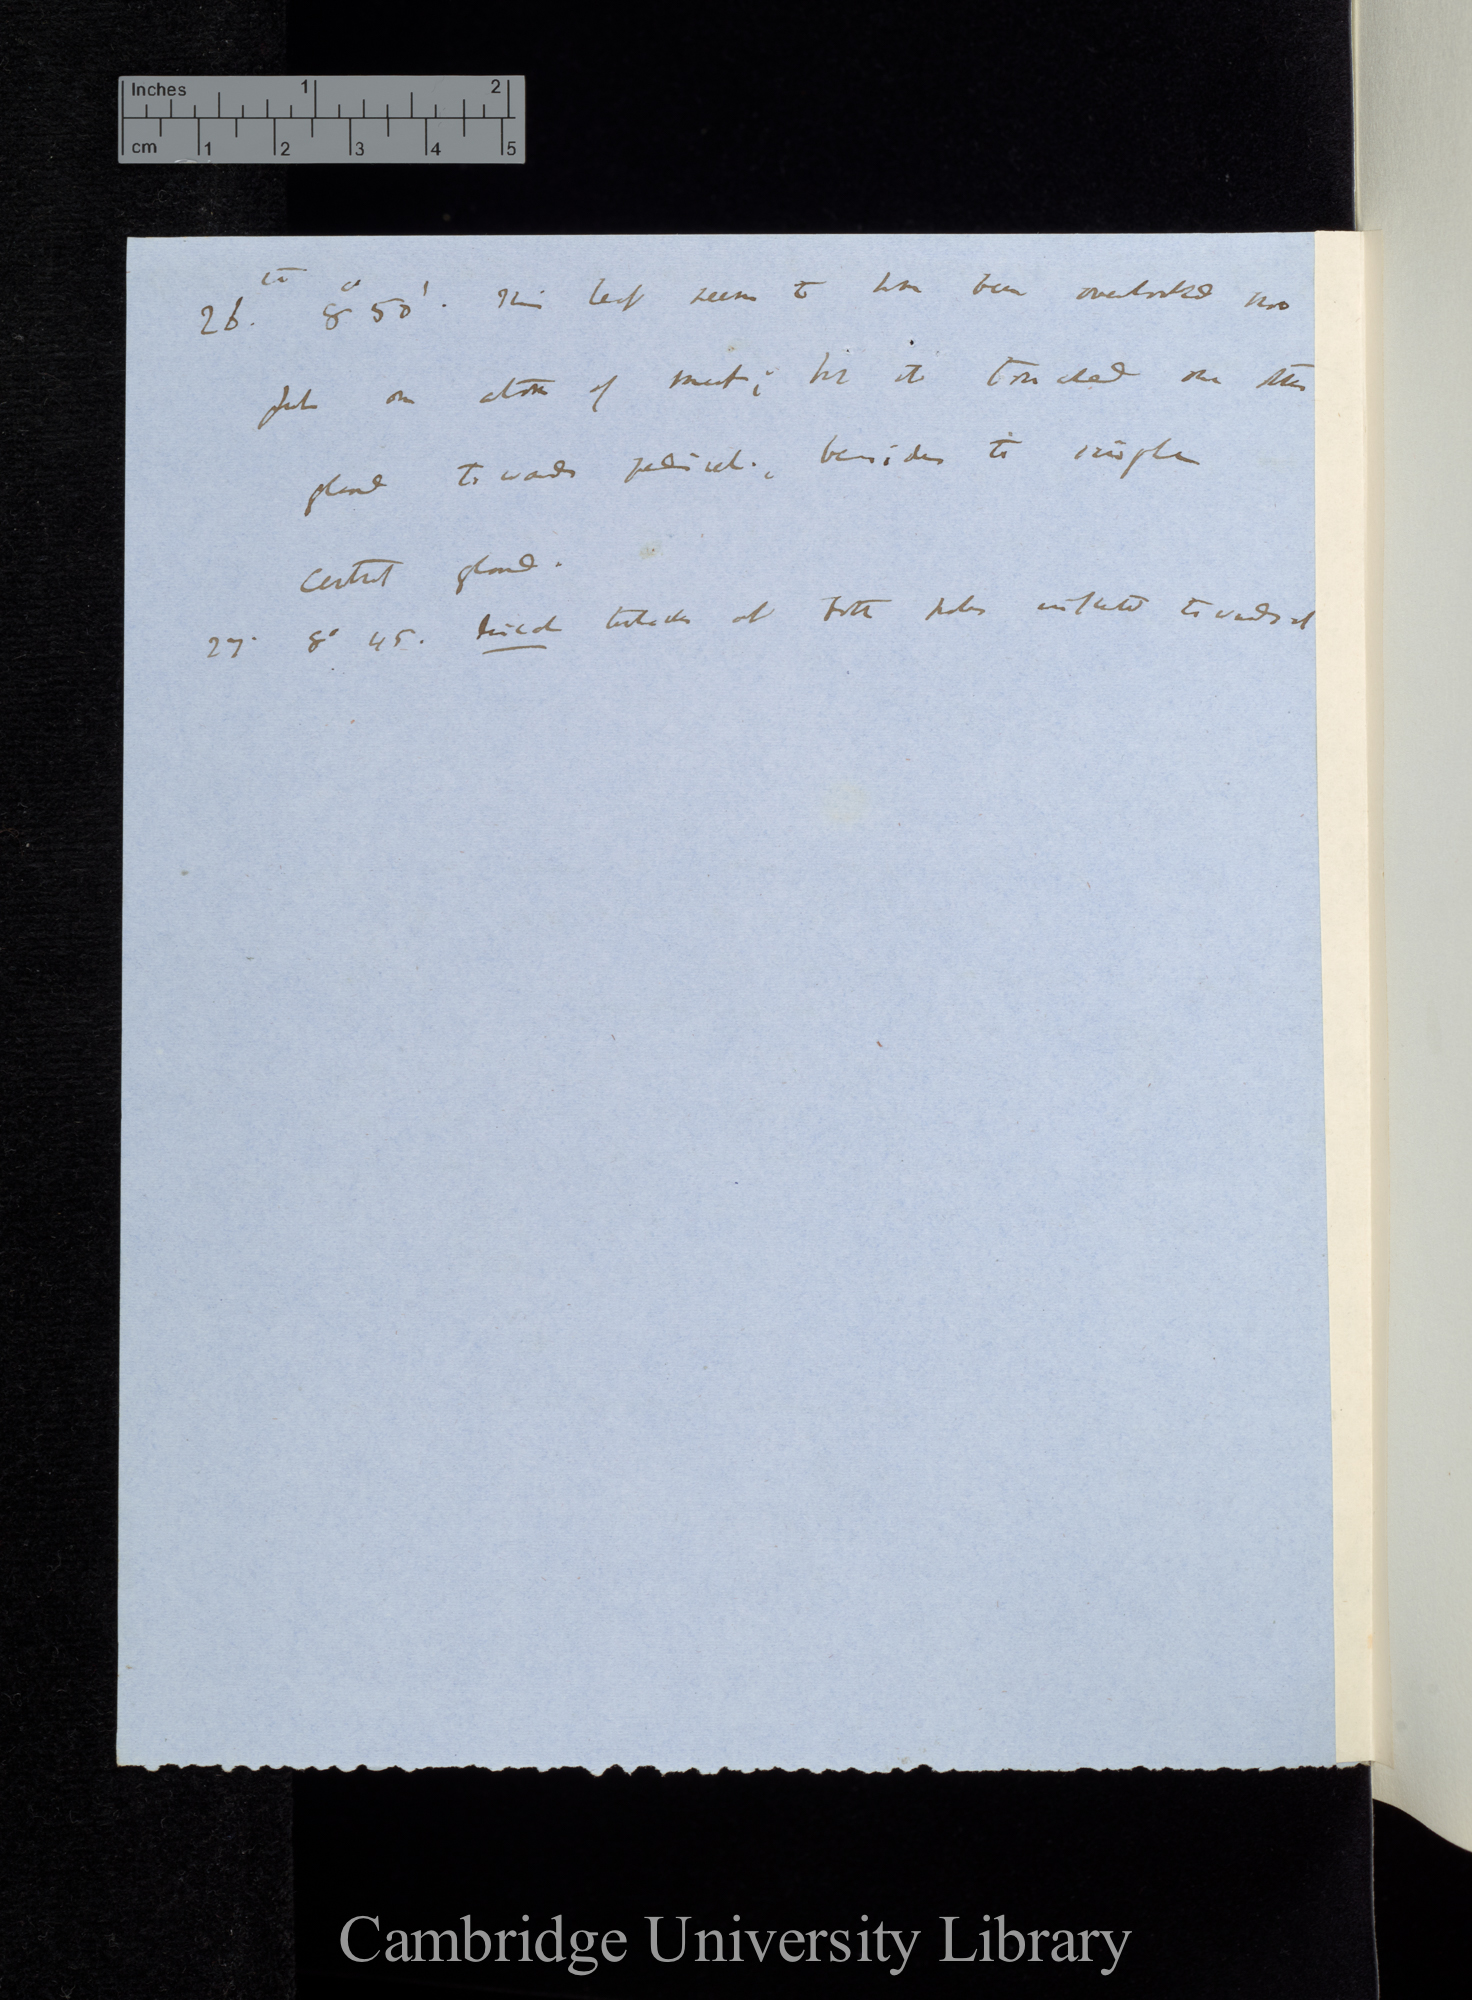 Inches 1 2
cm 1 2 3 4 5
26th. 8° 50'. This leaf seems to have been overlooked
on atom of meat; but it touched one other
gland towards pedicel, besides the single
central gland.
27. 8° 45. discal tentacles of both sides inflected towards it
Cambridge University Library